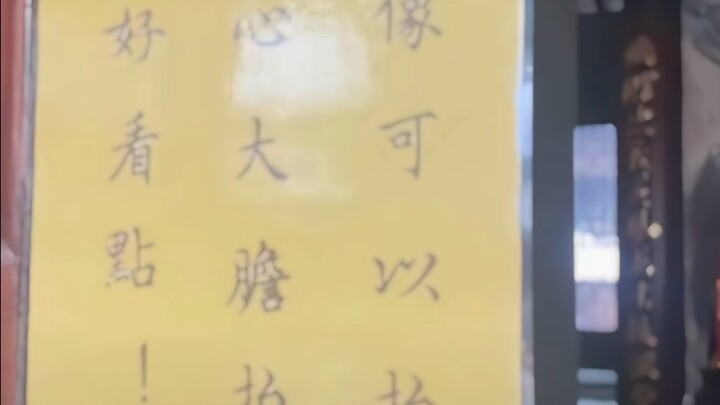 像可以拍
心大膽拍
好看點！